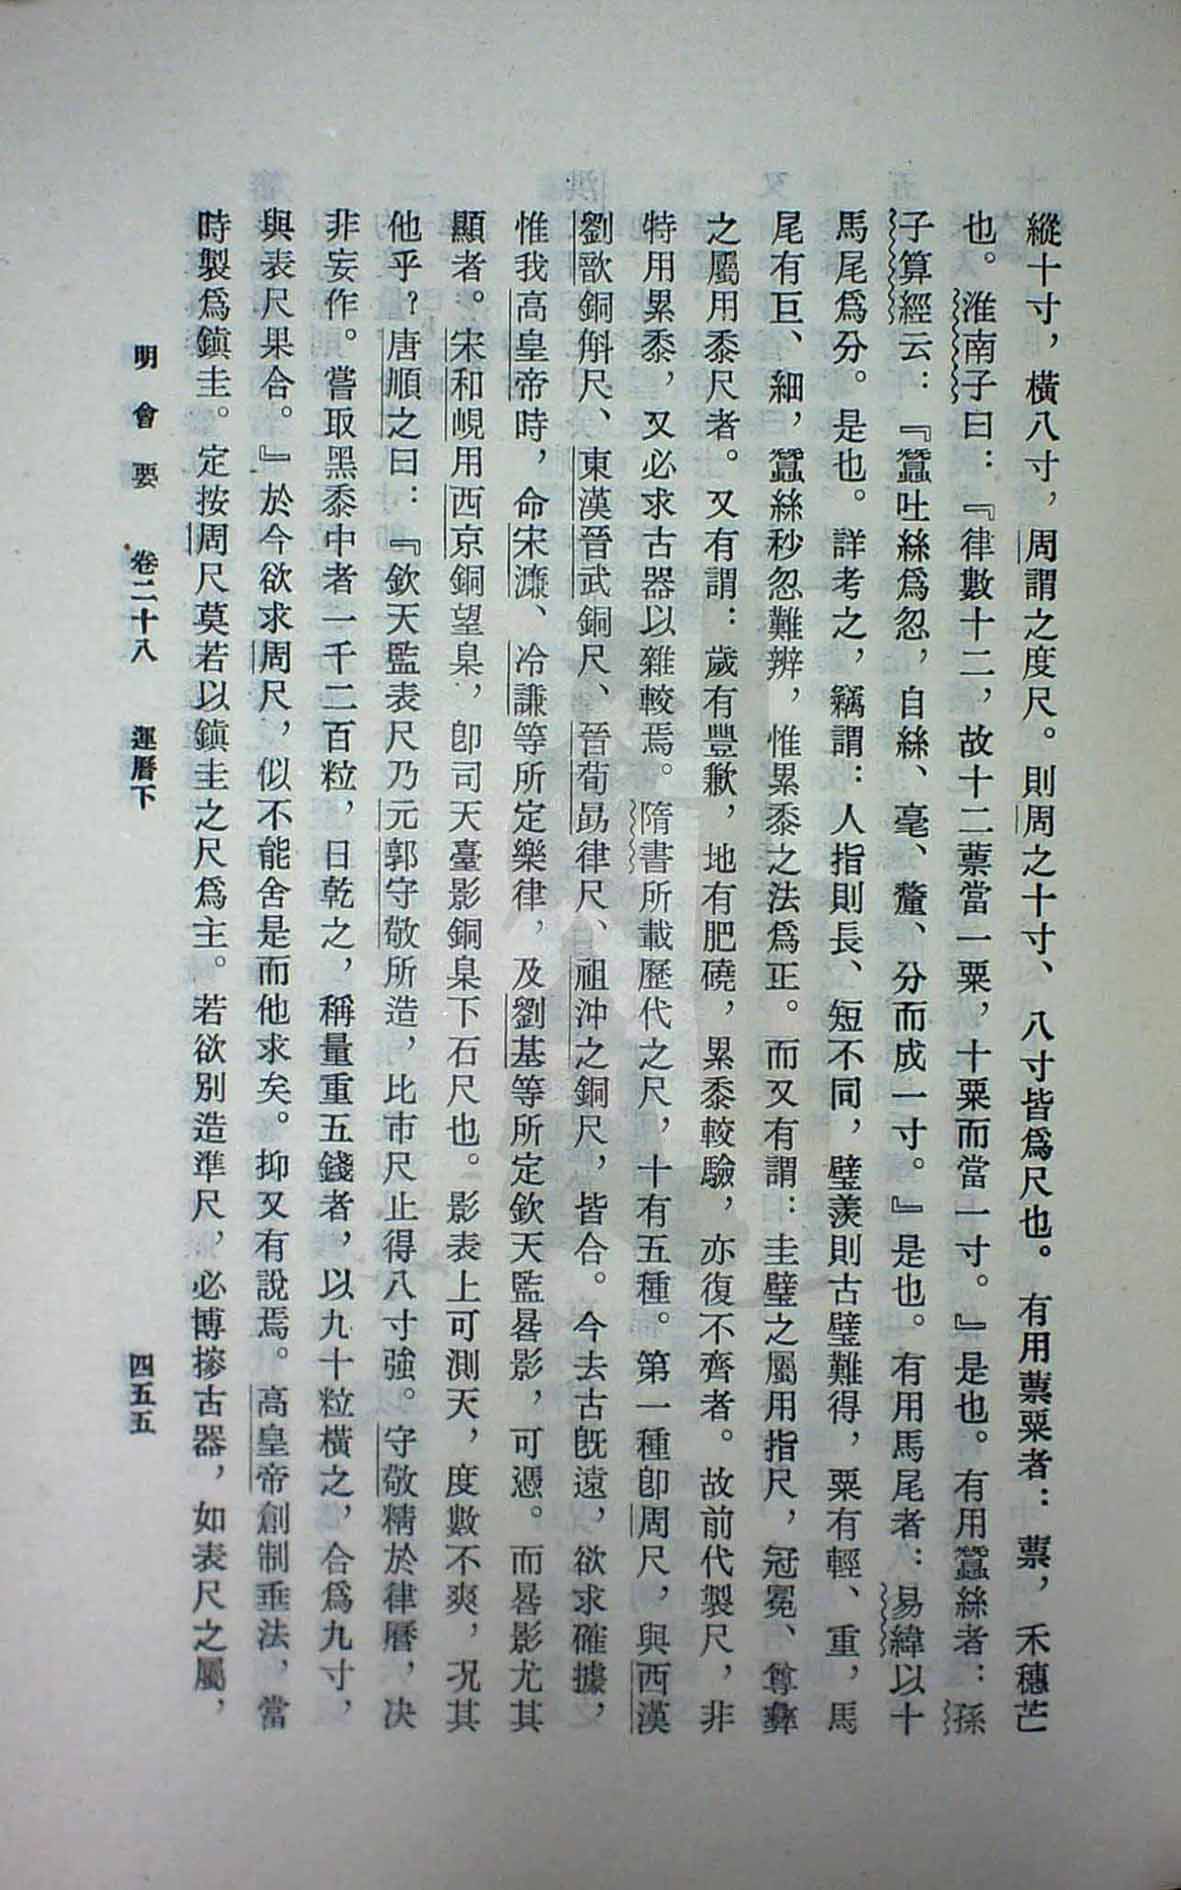 縱十寸，橫八寸，周謂之度尺。則周之十寸、八寸皆爲尺也。有用蔈粟者：蔈，禾穗芒
也。淮南子曰：『律數十二，故十二蔈當一粟，十粟而當一寸。』是也。有用蠶絲者：孫
子算經云：『蠶吐絲爲忽，自絲、毫、釐、分而成一寸。』是也。有用馬尾者：易緯以十
馬尾爲分。是也。詳考之，竊謂：人指則長、短不同，璧羨則古璧難得，粟有輕、重，馬
尾有巨、細，蠶絲秒忽難辨，惟累黍之法爲正。而又有謂：圭璧之屬用指尺，冠冕、尊彝
之屬用黍尺者。又有謂：歲有豐歉，地有肥磽，累黍較驗，亦復不齊者。故前代製尺，非
特用累黍，又必求古器以雜較焉。隋書所載歷代之尺，十有五種。第一種卽周尺，與西漢
劉歆銅斛尺、東漢晉武銅尺、晉荀勗律尺、祖沖之銅尺，皆合。今去古旣遠，欲求確據，
惟我高皇帝時，命宋濂、冷謙等所定樂律，及劉基等所定欽天監晷影，可憑。而晷影尤其
顯者。宋和峴用西京銅望臬，卽司天臺影銅臬下石尺也。影表上可測天，度數不爽，況其
他乎？唐順之曰：『欽天監表尺乃元郭守敬所造，比市尺止得八寸強。守敬精於律曆，決
非妄作。嘗取黑黍中者一千二百粒，日乾之，稱量重五錢者，以九十粒橫之，合爲九寸，
與表尺果合。』於今欲求周尺，似不能舍是而他求矣。抑又有說焉。高皇帝創制垂法，當
時製爲鎮圭。定按周尺莫若以鎮圭之尺爲主。若欲別造準尺，必博摻古器，如表尺之屬，
明會要 卷二十八 運曆下 四五五